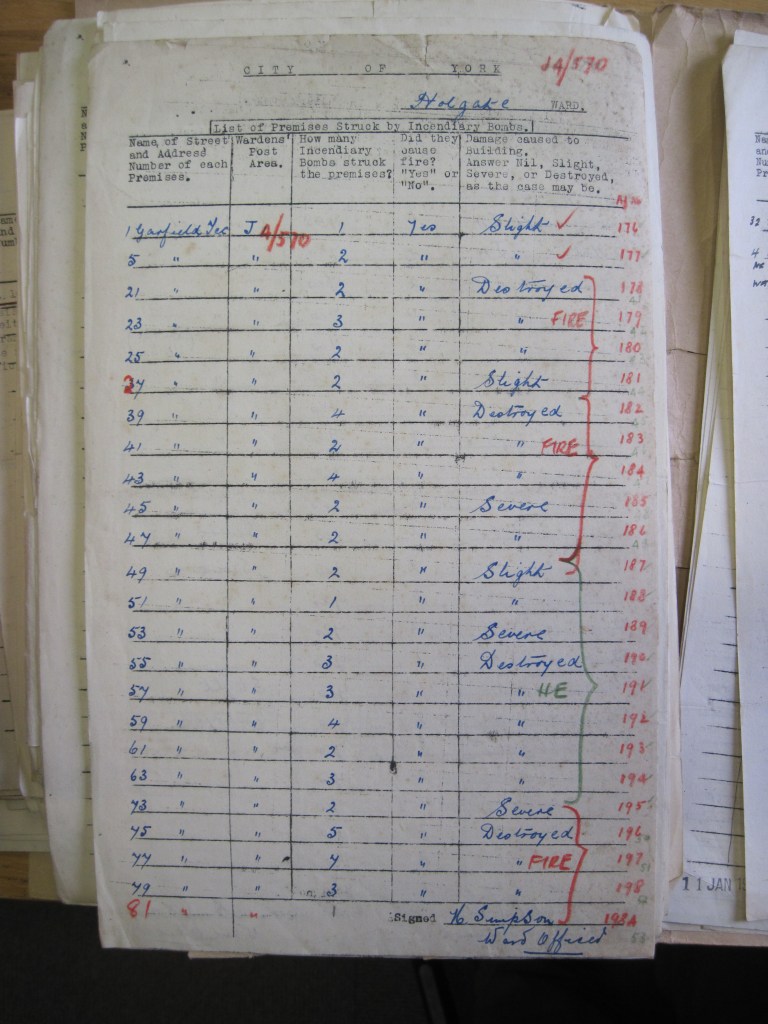 CITY OF YORK
1A/570
Holgate WARD.
List of Premises Struck by Incendiary Bombs.
Name of Street and Address Number of each Premises. Wardens' Post Area. How many Incendiary Bombs struck the premises? Did they cause fire? "Yes" or "No". Damage caused to Building. Answer Nil, Slight, Severe, or Destroyed, as the case may be.
1 Garfield Ter J A/570 1 Yes Slight ✓ 176
5 " " 2 " " ✓ 177
21 " " 2 " Destroyed 178
23 " " 3 " " FIRE 179
25 " " 2 " " 180
37 " " 2 " Slight 181
39 " " 4 " Destroyed 182
41 " " 2 " " FIRE 183
43 " " 4 " " 184
45 " " 2 " Severe 185
47 " " 2 " " 186
49 " " 2 " Slight 187
51 " " 1 " " 188
53 " " 2 " Severe 189
55 " " 3 " Destroyed 190
57 " " 3 " " HE 191
59 " " 4 " " 192
61 " " 2 " " 193
63 " " 3 " " 194
73 " " 2 " Severe 195
75 " " 5 " Destroyed 196
77 " " 4 " " FIRE 197
79 " " 3 " " 198
81 " " 1 Signed K Simpson 198A
Ward Officer
11 JAN